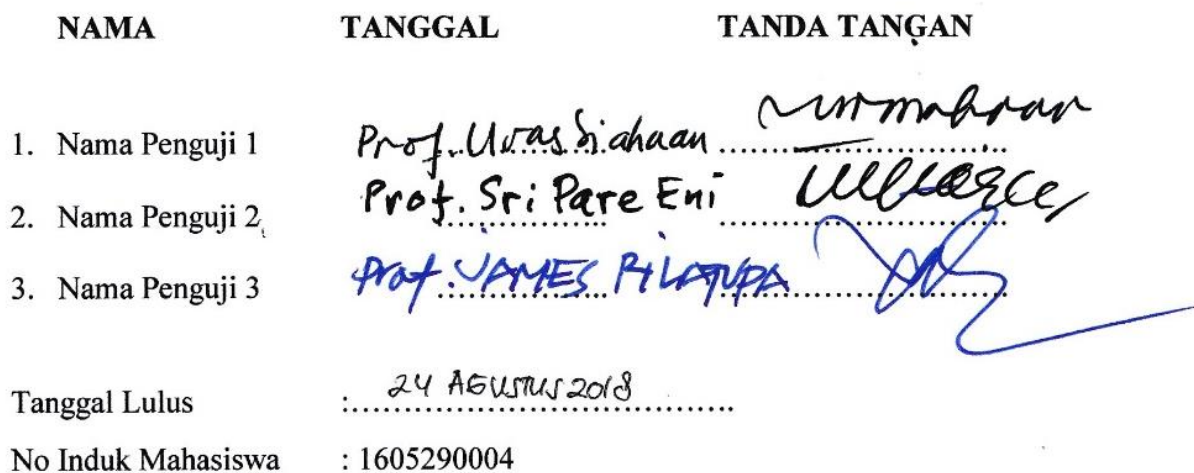 NAMA TANGGAL TANDA TANGAN
1. Nama Penguji 1 Prof. Uras Siahaan
2. Nama Penguji 2 Prof. Sri Pare Eni
3. Nama Penguji 3 Prof. JAMES RILATUPA
Tanggal Lulus : 24 AGUSTUS 2018
No Induk Mahasiswa : 1605290004